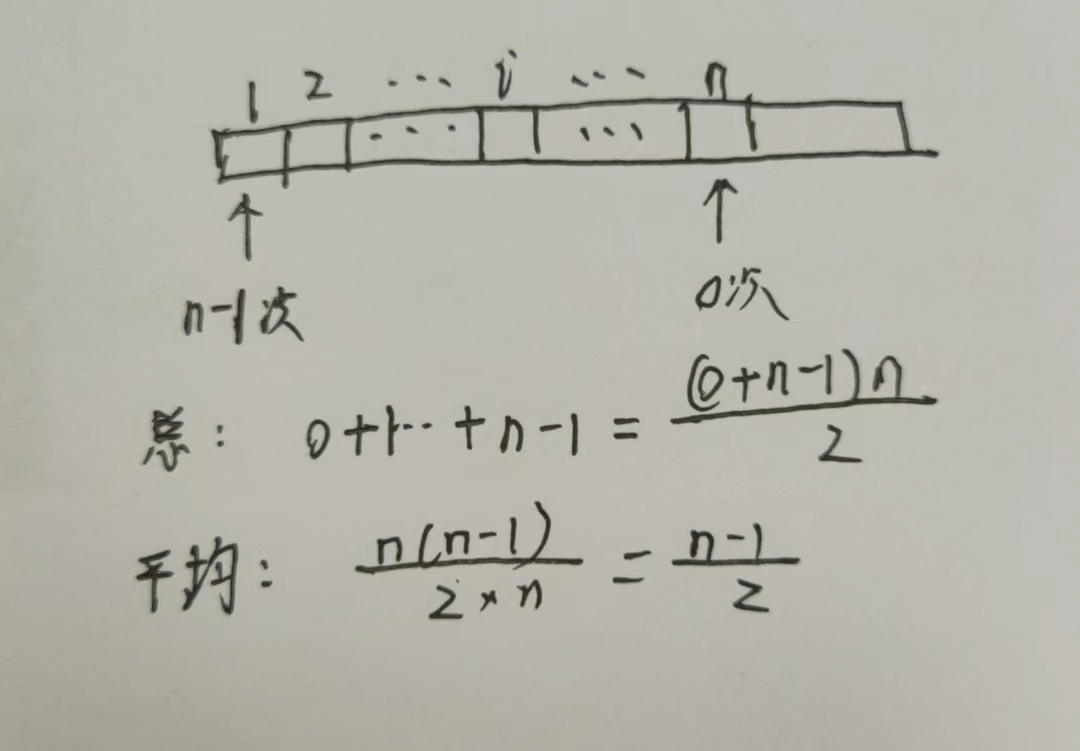 1 2 ... i ... n
... ...
↑ ↑
n-1次 0次
总: 0+1··+n-1 = (0+n-1)n / 2
平均: n(n-1) / 2×n = n-1 / 2